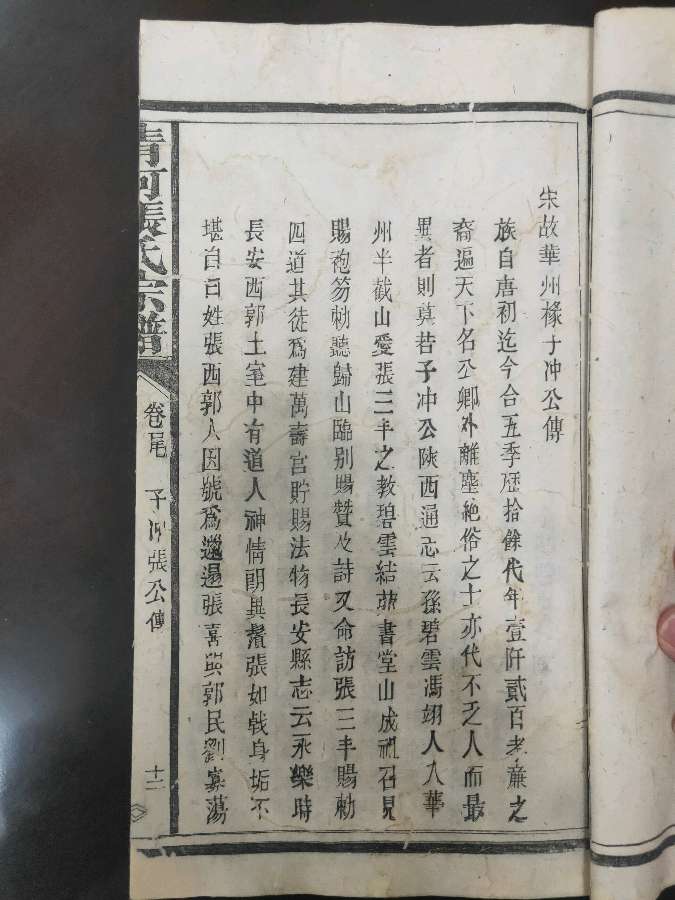 宋故華州椽子冲公傳
族自唐初迄今合五季歷拾餘代年壹阡貳百孝廉之
裔遍天下名公卿外離塵絶俗之士亦代不乏人而最
異者則莫若子冲公陝西通志云孫碧雲馮翊人入華
州半截山愛張三丰之教碧雲結茆書堂山成祖召見
賜袍笏勅聽歸山臨别賜贊及詩又命訪張三丰賜勅
四道其徒爲建萬壽宮貯賜法物長安縣志云永樂時
長安西郭土室中有道人神情朗異鬚張如戟身垢不
堪自曰姓張西郭人因號爲邋遢張喜與郭民劉寡蕩
清河張氏宗譜
卷尾 子冲張公傳
十二